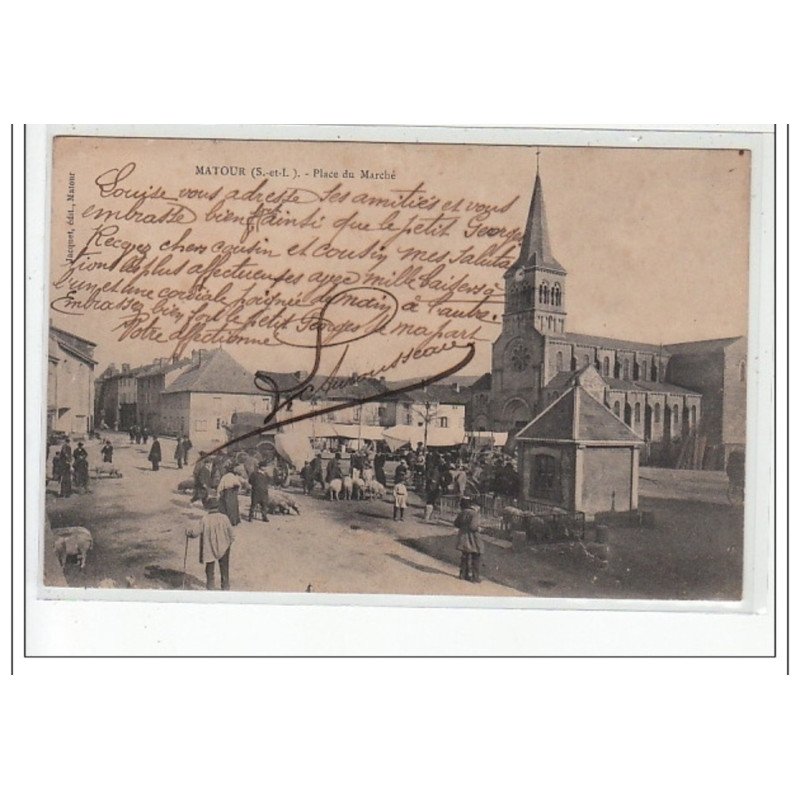 MATOUR (S.-et-L.). - Place du Marché
Jacquet, édit., Matour
Louise vous adresse ses amitiés et vous
embrasse bien ainsi que le petit Georges
Recevez chers cousin et cousin mes saluta
tions les plus affectueuses avec mille baisers à
l'un et une cordiale poignée de main à l'autre.
Embrassez bien fort le petit Georges de ma part
Votre affectionné